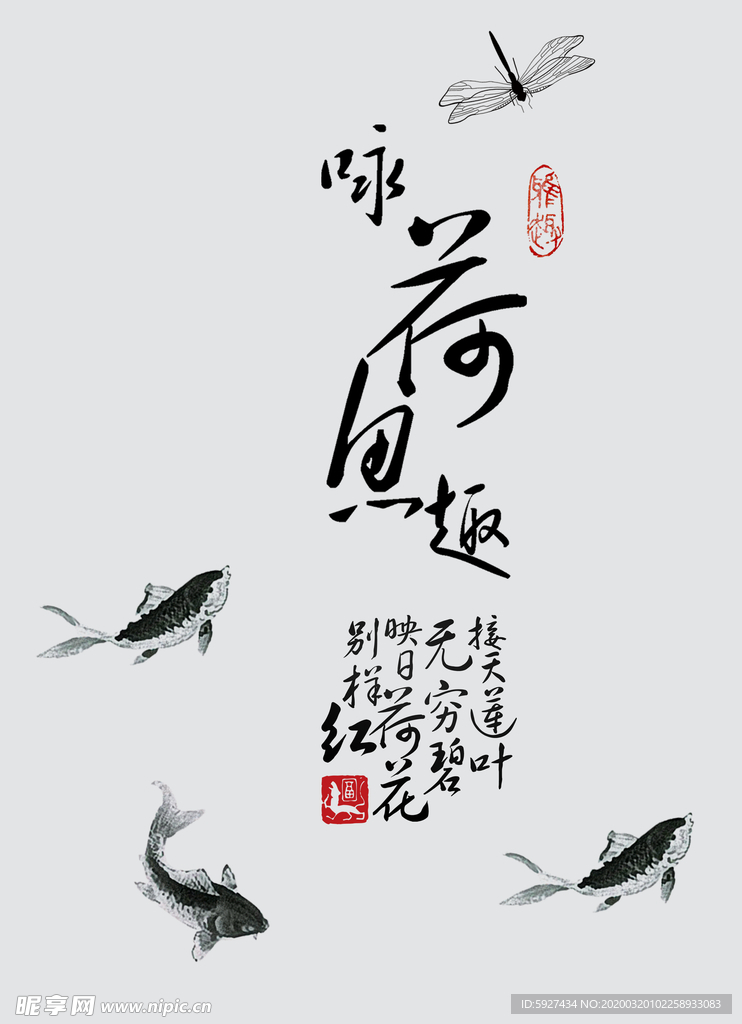 咏荷思趣
雅趣
接天莲叶
无穷碧
映日荷花
别样红
昵享网 www.nipic.cn
ID:5927434 NO:20200320102258933083